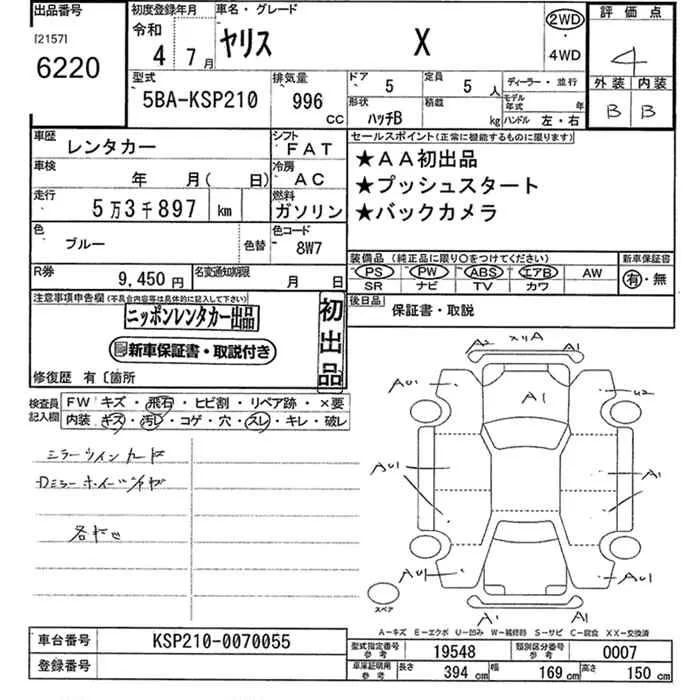 出品番号
[2157]
6220
初度登録年月
令和
4年
7月
車名・グレード
ヤリス X
2WD
・
4WD
評価点
4
外装 内装
B B
型式
5BA-KSP210
排気量
996
cc
ドア
5
定員
5人
形状
ハッチB
積載
kg
ディーラー・並行
モデル年式 年
ハンドル 左・右
車歴
レンタカー
シフト
FAT
車検
年 月( 日)
冷房
AC
走行
5万3千897 km
燃料
ガソリン
色
ブルー
色替
色コード
8W7
R券
9,450円
名変通知期限
月 日
セールスポイント(正常に機能するものに限ります)
★AA初出品
★プッシュスタート
★バックカメラ
装備品(純正品に限り○をつけてください)
PS PW ABS エアB AW
SR ナビ TV カワ
新車保証書
有・無
後日品
保証書・取説
注意事項申告欄(不具合内容等は具体的に記入して下さい)
ニッポンレンタカー出品
新車保証書・取説付き
初出品
修復歴 有〔箇所
検査員
記入欄
FW キズ・飛石・ヒビ割・リペア跡・×要
内装 キズ・汚レ・コゲ・穴・スレ・キレ・破レ
A2 メリA A1
AU1 A1 U2
AU1 A1
AU1 AU1
A1 A1
スペア
A-キズ E-エクボ U-凹み W-補修跡 S-サビ C-腐食 XX-交換済
車台番号
KSP210-0070055
登録番号
型式指定番号
参考
19548
類別区分番号
参考
0007
車庫証明用
参考
長さ
394 cm
幅
169 cm
高さ
150 cm